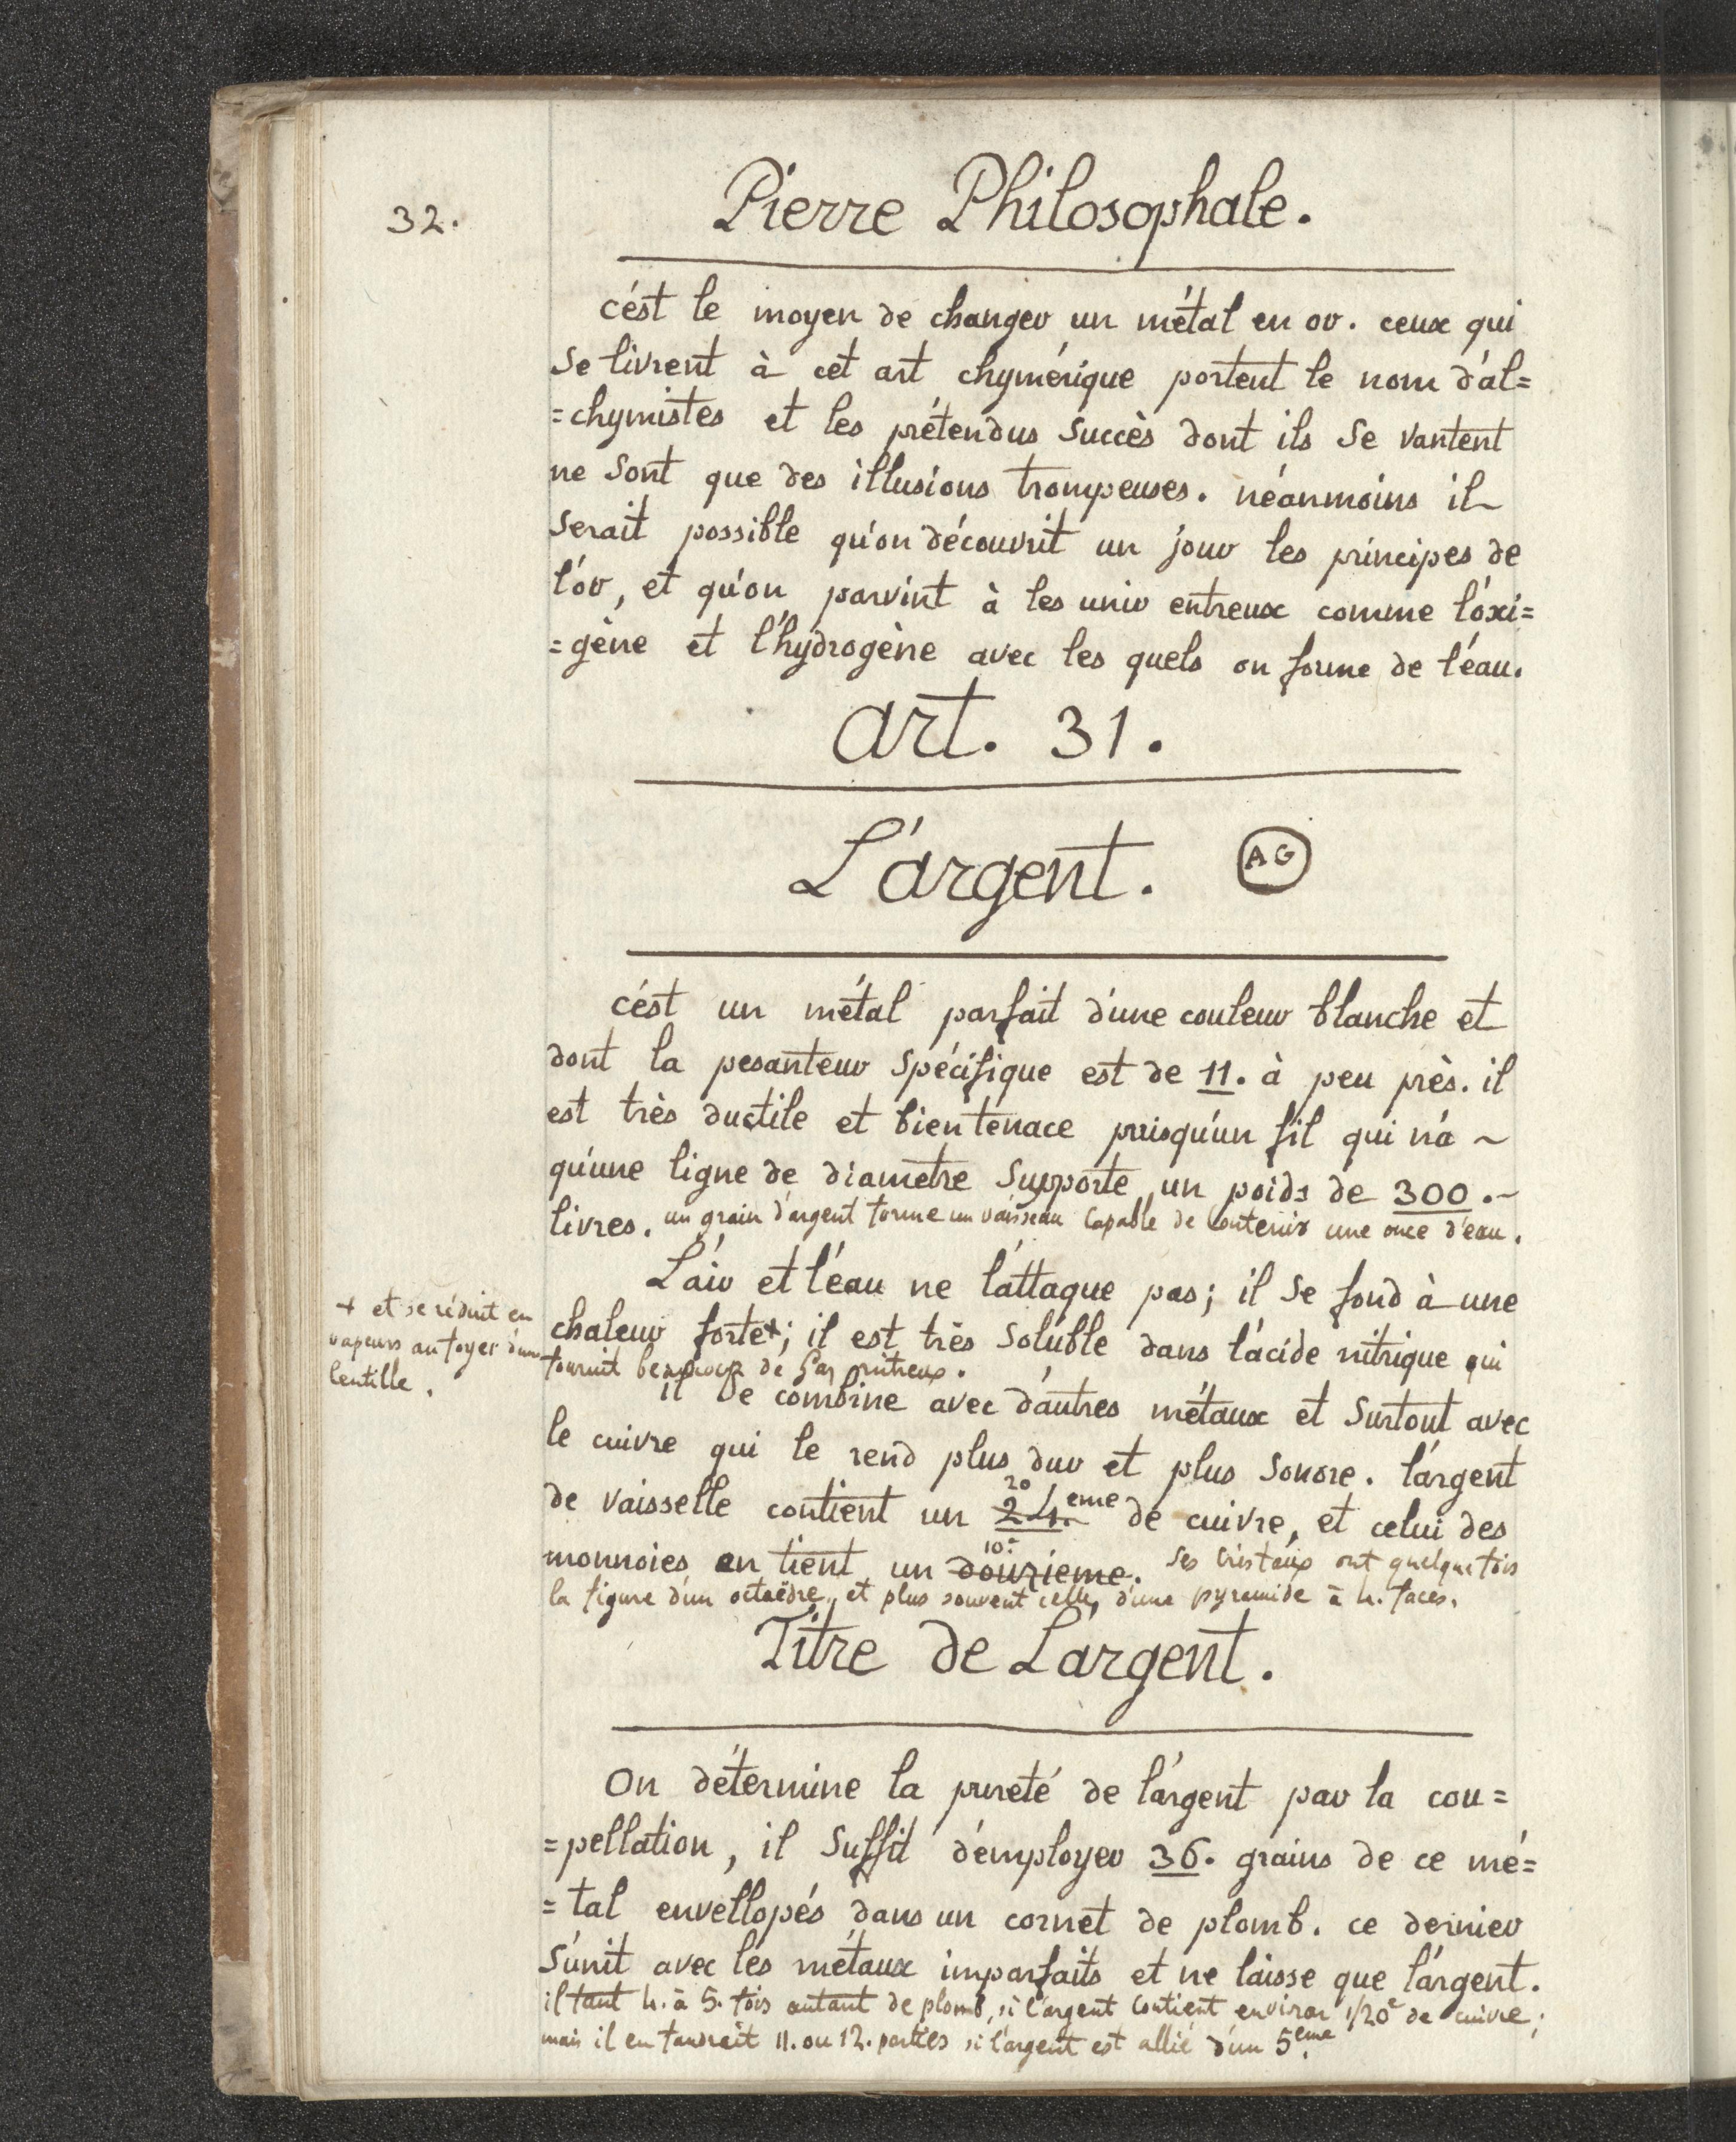 32.
Pierre Philosophale.
c'ést le moyen de changer un métal en or. ceux qui
se livrent à cet art chymérique portent le nom d'al=
=chymistes et les prétendus succès dont ils se vantent
ne sont que des illusions trompeuses. néanmoins il
serait possible qu'on découvrit un jour les principes de
l'or, et qu'on parvint à les unir entreux comme l'oxi=
=gène et l'hydrogène avec les quels on forme de l'éau.
art. 31.
L'argent. AG
c'ést un métal parfait d'une couleur blanche et
dont la pesanteur spécifique est de 11. à peu près. il
est très ductile et bien tenace puisqu'un fil qui n'a ~
qu'une ligne de diametre supporte un poids de 300. ~
livres. un grain d'argent forme un vaisseau capable de contenir une once d'eau.
L'air et l'éau ne l'attaque pas; il se fond à une
chaleur forte+; il est très soluble dans l'acide nitrique qui
fournit beaucoup de gaz nitreux.
+ et se réduit en
vapeurs au foyer d'une
lentille.
il se combine avec d'autres métaux et surtout avec
le cuivre qui le rend plus dur et plus sonore. l'argent
de vaisselle contient un 24. 20 eme de cuivre, et celui des
monnoies en tient un douzieme. 10e ses cristaux ont quelque fois
la figure d'un octaëdre, et plus souvent celle d'une pyramide à 4. faces.
Titre de L'argent.
On détermine la pureté de l'argent par la cou=
=pellation, il suffit d'employer 36. grains de ce mé=
=tal envellopés dans un cornet de plomb. ce dernier
s'unit avec les métaux imparfaits et ne laisse que l'argent.
il faut 4. à 5. fois autant de plomb, si l'argent contient environ 1/20e de cuivre;
mais il en faudrait 11. ou 12. parties si l'argent est allié d'un 5.eme